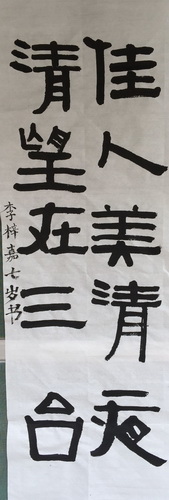 佳人美清夜
清望在三台
李梓嘉七岁书